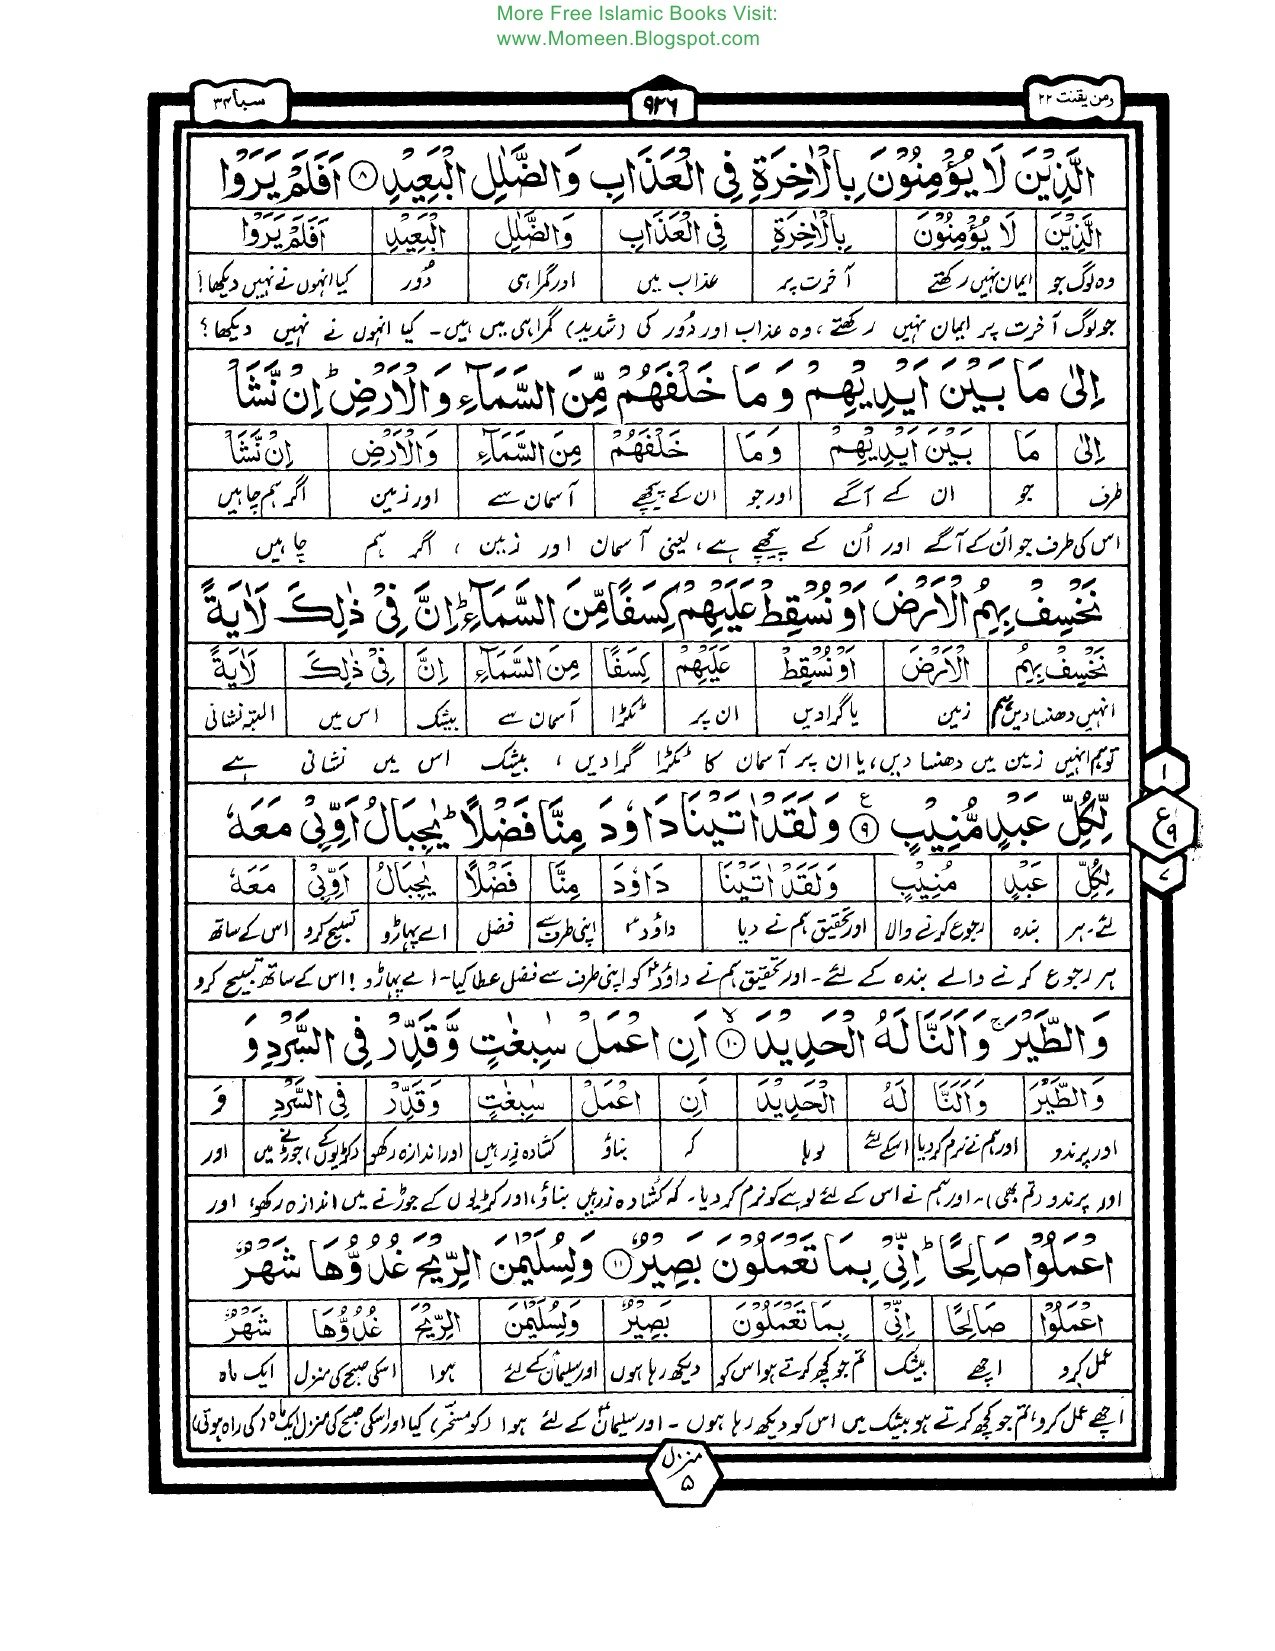 More Free Islamic Books Visit:
www.Momeen.Blogspot.com
ومن یقنت ۲۲
۹۲۶
سبا ۳۴
الَّذِيۡنَ لَا يُؤۡمِنُوۡنَ بِالۡاٰخِرَةِ فِى الۡعَذَابِ وَالضَّلٰلِ الۡبَعِيۡدِ ۸ اَفَلَمۡ يَرَوۡا
الَّذِيۡنَ لَا يُؤۡمِنُوۡنَ بِالۡاٰخِرَةِ فِى الۡعَذَابِ وَالضَّلٰلِ الۡبَعِيۡدِ اَفَلَمۡ يَرَوۡا
وہ لوگ جو ایمان نہیں رکھتے آخرت پر عذاب میں اور گمراہی دُور کیا انہوں نے نہیں دیکھا!
جو لوگ آخرت پر ایمان نہیں رکھتے، وہ عذاب اور دُور کی (شدید) گمراہی میں ہیں۔ کیا انہوں نے نہیں دیکھا؟
اِلٰى مَا بَيۡنَ اَيۡدِيۡهِمۡ وَمَا خَلۡفَهُمۡ مِّنَ السَّمَآءِ وَالۡاَرۡضِ ؕ اِنۡ نَّشَاۡ
اِلٰى مَا بَيۡنَ اَيۡدِيۡهِمۡ وَمَا خَلۡفَهُمۡ مِنَ السَّمَآءِ وَالۡاَرۡضِ اِنۡ نَّشَاۡ
طرف جو ان کے آگے اور جو ان کے پیچھے آسمان سے اور زمین اگر ہم چاہیں
اس کی طرف جو اُن کے آگے اور اُن کے پیچھے ہے، یعنی آسمان اور زمین ، اگر ہم چاہیں
نَخۡسِفۡ بِهِمُ الۡاَرۡضَ اَوۡ نُسۡقِطۡ عَلَيۡهِمۡ كِسَفًا مِّنَ السَّمَآءِ ؕ اِنَّ فِىۡ ذٰلِكَ لَاٰيَةً
نَخۡسِفۡ بِهِمُ الۡاَرۡضَ اَوۡ نُسۡقِطۡ عَلَيۡهِمۡ كِسَفًا مِنَ السَّمَآءِ اِنَّ فِىۡ ذٰلِكَ لَاٰيَةً
انہیں دھنسا دیں ہم زمین یا گرا دیں ان پر ٹکڑا آسمان سے بیشک اس میں البتہ نشانی
تو ہم انہیں زمین میں دھنسا دیں، یا ان پر آسمان کا ٹکڑا گرا دیں ، بیشک اس میں نشانی ہے
۱
ع ۹
۷
لِّكُلِّ عَبۡدٍ مُّنِيۡبٍ ۹ ع وَلَقَدۡ اٰتَيۡنَا دَاوٗدَ مِنَّا فَضۡلًا ؕ يٰجِبَالُ اَوِّبِىۡ مَعَهٗ
لِكُلِّ عَبۡدٍ مُنِيۡبٍ وَلَقَدۡ اٰتَيۡنَا دَاوٗدَ مِنَّا فَضۡلًا يٰجِبَالُ اَوِّبِىۡ مَعَهٗ
لئے۔ ہر بندہ رجوع کرنے والا اور تحقیق ہم نے دیا داؤدؑ اپنی طرف سے فضل اے پہاڑو تسبیح کرو اس کے ساتھ
ہر رجوع کرنے والے بندہ کے لئے۔ اور تحقیق ہم نے داؤدؑ کو اپنی طرف سے فضل عطا کیا۔ اے پہاڑو! اس کے ساتھ تسبیح کرو
وَالطَّيۡرَ ۚ وَاَلَنَّا لَهُ الۡحَدِيۡدَ ۙ ۱۰ اَنِ اعۡمَلۡ سٰبِغٰتٍ وَّقَدِّرۡ فِى السَّرۡدِ وَ
وَالطَّيۡرَ وَاَلَنَّا لَهُ الۡحَدِيۡدَ اَنِ اعۡمَلۡ سٰبِغٰتٍ وَقَدِّرۡ فِى السَّرۡدِ وَ
اور پرندو اور ہم نے نرم کردیا اسکے لئے لوہا کہ بناؤ کشادہ زرہیں اور اندازہ رکھو (کڑیوں کے) جوڑنے میں اور
اور پرندو (تم بھی)۔ اور ہم نے اس کے لئے لوہے کو نرم کردیا۔ کہ کشادہ زرہیں بناؤ، اور کڑیوں کے جوڑنے میں اندازہ رکھو، اور
اعۡمَلُوۡا صَالِحًا ؕ اِنِّىۡ بِمَا تَعۡمَلُوۡنَ بَصِيۡرٌ ۱۱ وَلِسُلَيۡمٰنَ الرِّيۡحَ غُدُوُّهَا شَهۡرٌ
اعۡمَلُوۡا صَالِحًا اِنِّىۡ بِمَا تَعۡمَلُوۡنَ بَصِيۡرٌ وَلِسُلَيۡمٰنَ الرِّيۡحَ غُدُوُّهَا شَهۡرٌ
عمل کرو اچھے بیشک تم جو کچھ کرتے ہو اس کو دیکھ رہا ہوں اور سلیمانؑ کے لئے ہوا اسکی صبح کی منزل ایک ماہ
اچھے عمل کرو، تم جو کچھ کرتے ہو بیشک میں اس کو دیکھ رہا ہوں۔ اور سلیمانؑ کے لئے ہوا (کو مسخر) کیا اور اسکی صبح کی منزل ایک ماہ (کی راہ ہوتی)
منزل ۵